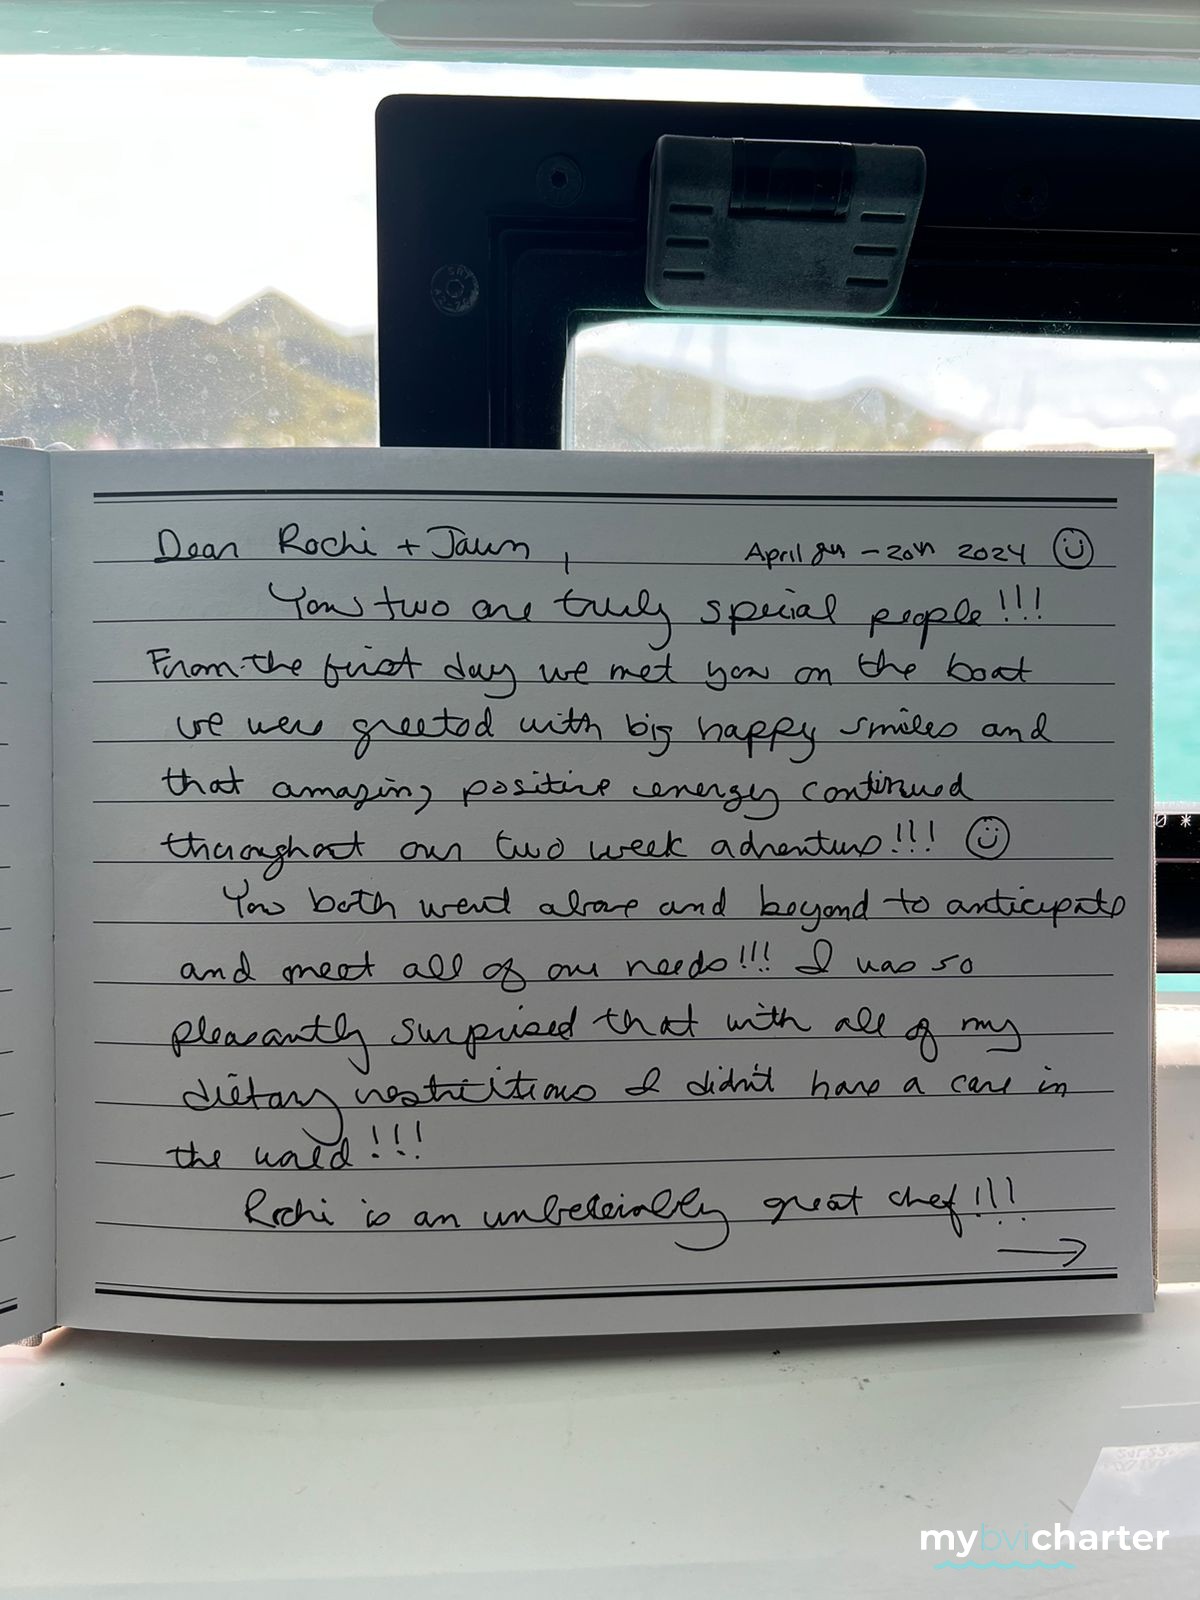 Dear Rochi + Jaun,
April 8th - 20th 2024
You two are truly special people!!!
From the first day we met you on the boat
we were greeted with big happy smiles and
that amazing positive energy continued
throughout our two week adventure!!!
You both went above and beyond to anticipate
and meet all of our needs!!! I was so
pleasantly surprised that with all of my
dietary restrictions I didn't have a care in
the world!!!
Rochi is an unbeleivably great chef!!!
→
mybvicharter